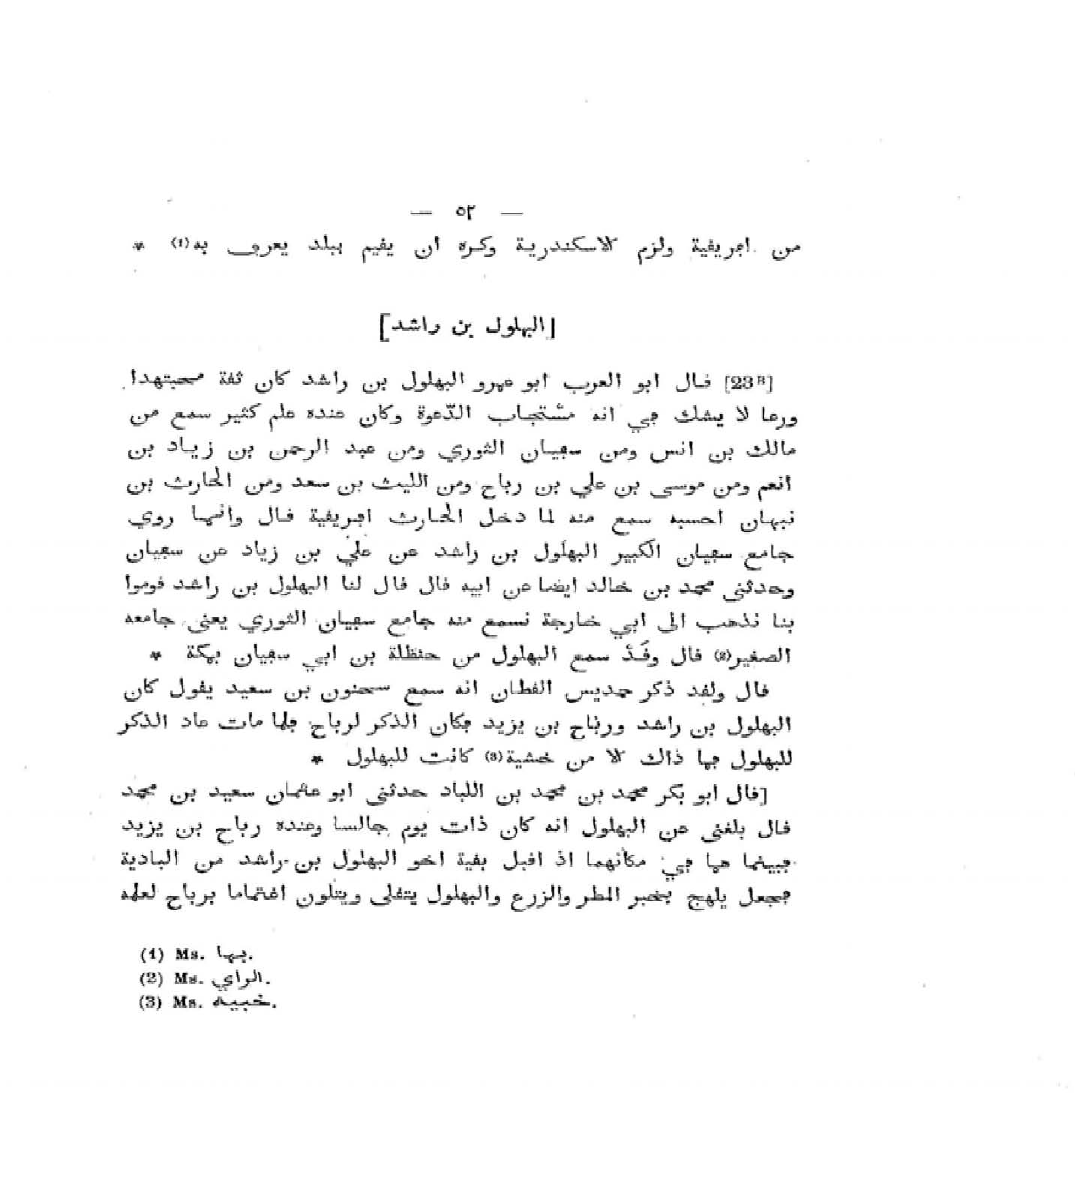 — ٥٢ —
من افريقية ولزم الاسكندرية وكره ان يقيم ببلد يعرف به(1) *
[البهلول بن راشد]
[23ᴮ] قال ابو العرب ابو عمرو البهلول بن راشد كان ثقة مجتهدا
ورعا لا يشك في انه مستجاب الدّعوة وكان عنده علم كثير سمع من
مالك بن انس ومن سفيان الثوري ومن عبد الرحمن بن زياد بن
انعم ومن موسى بن علي بن رباح ومن الليث بن سعد ومن الحارث بن
نبهان احسبه سمع منه لما دخل الحارث افريقية قال وانما روي
جامع سفيان الكبير البهلول بن راشد عن علي بن زياد عن سفيان
وحدثنى محمد بن خالد ايضا عن ابيه قال قال لنا البهلول بن راشد قوموا
بنا نذهب الى ابي خارجة نسمع منه جامع سفيان الثوري يعنى جامعه
الصغير(2) قال وقد سمع البهلول من حنظلة بن ابي سفيان بمكة *
قال ولقد ذكر حمديس القطان انه سمع سحنون بن سعيد يقول كان
البهلول بن راشد ورباح بن يزيد فكان الذكر لرباح فلما مات عاد الذكر
للبهلول فما ذاك الا من خشية(3) كانت للبهلول *
[قال ابو بكر محمد بن محمد بن اللباد حدثنى ابو عثمان سعيد بن محمد
قال بلغنى عن البهلول انه كان ذات يوم جالسا وعنده رباح بن يزيد
فبينما هما في مكانهما اذ اقبل بقية اخو البهلول بن راشد من البادية
فجعل يلهج بخبر المطر والزرع والبهلول يتقلى ويتلون اغتماما برباح لعلمه
(1) Ms. بها.
(2) Ms. الراي.
(3) Ms. خبية.